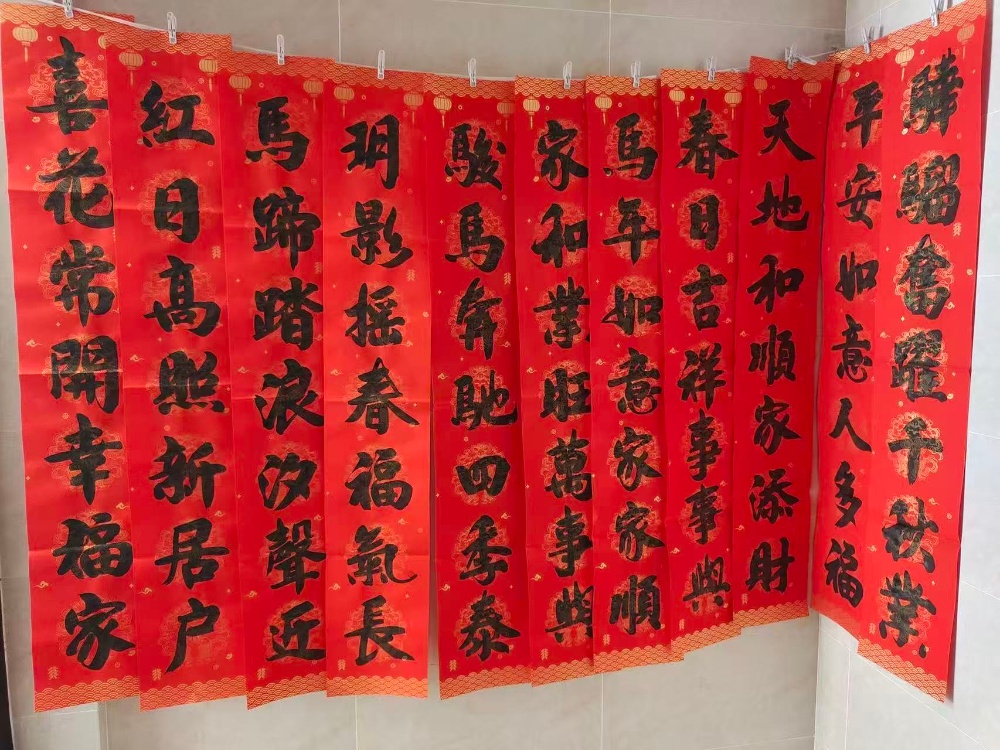 驊騮奮躍千秋業
平安如意人多福
天地和順家添財
春日吉祥事事興
馬年如意家家順
家和業旺萬事興
駿馬奔馳四季泰
玥影摇春福氣長
馬蹄踏浪汐聲近
紅日高照新居户
喜花常開幸福家